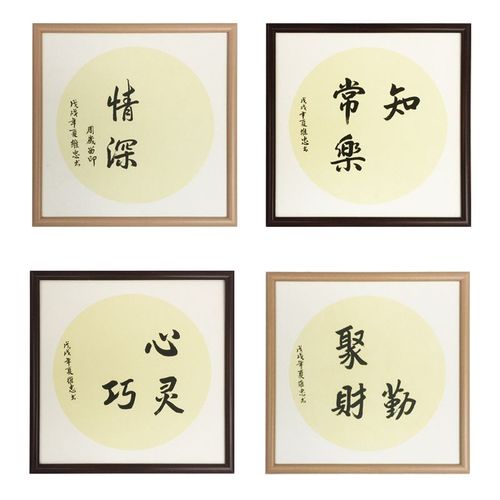 情深
周歲留印
戊戌年夏維忠书
知
常樂
戊戌年夏維忠书
心灵
巧
戊戌年夏維忠书
勤
聚財
戊戌年夏維忠书